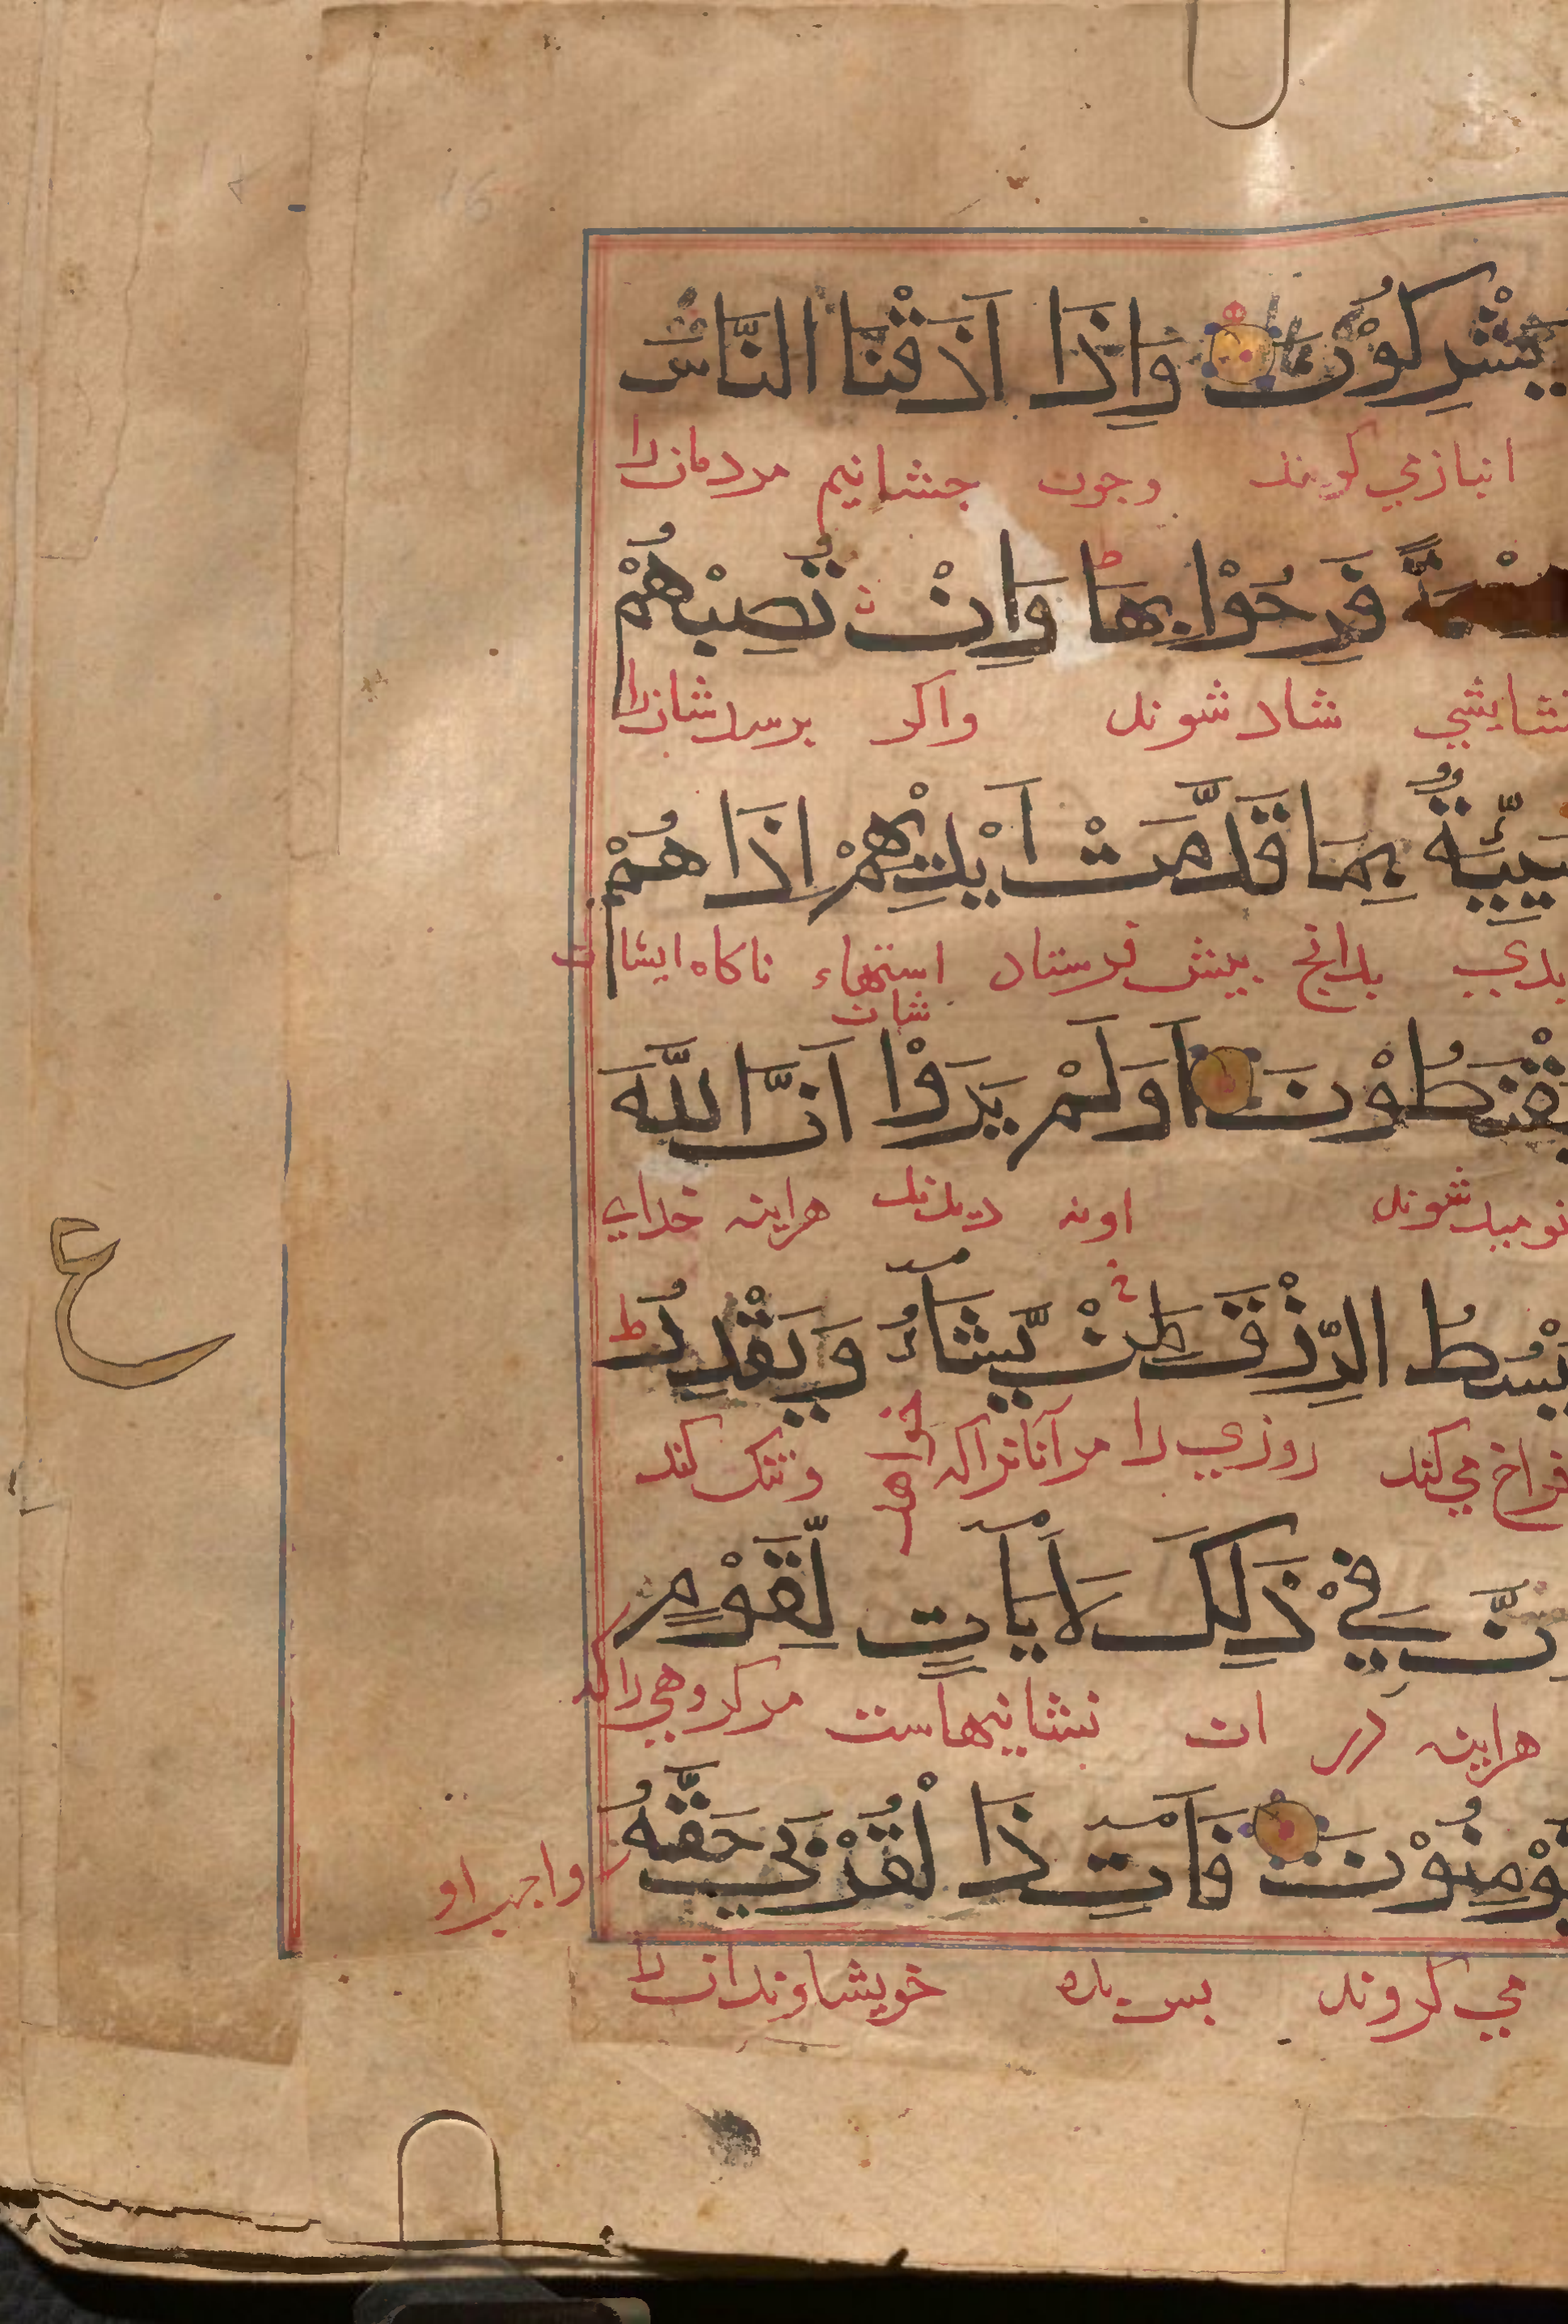 يُشْرِكُوْنَ وَاِذَا اَذَقْنَا النَّاسَ
انبازمي كويند وجون جشانيم مردمانرا
فَرِحُوْا بِهَا ط وَاِنْ تُصِبْهُمْ
شاد شوند واكر برسد شانرا
سَيِّئَةٌ بِمَا قَدَّمَتْ اَيْدِيْهِمْ اِذَا هُمْ
بدي بدانج بيش فرستاد استهاء ناكاه ايشان
شان
يَقْنَطُوْنَ اَوَلَمْ يَرَوْا اَنَّ اللّٰهَ
نوميد شوند اونه ديدند هراينه خداى
يَبْسُطُ الرِّزْقَ لِمَنْ يَّشَآءُ وَيَقْدِرُ ط
فراخ مي كند روزي را مر آنانرا كه خواهد وتنك كند
اِنَّ فِيْ ذٰلِكَ لَاٰيَاتٍ لِّقَوْمٍ
هراينه در ان نشانيهاست مركروهي راكه
يُؤْمِنُوْنَ فَاٰتِ ذَا لْقُرْبٰى حَقَّهُ
واجب او
مي كروند بس بده خويشاوندان را
ع